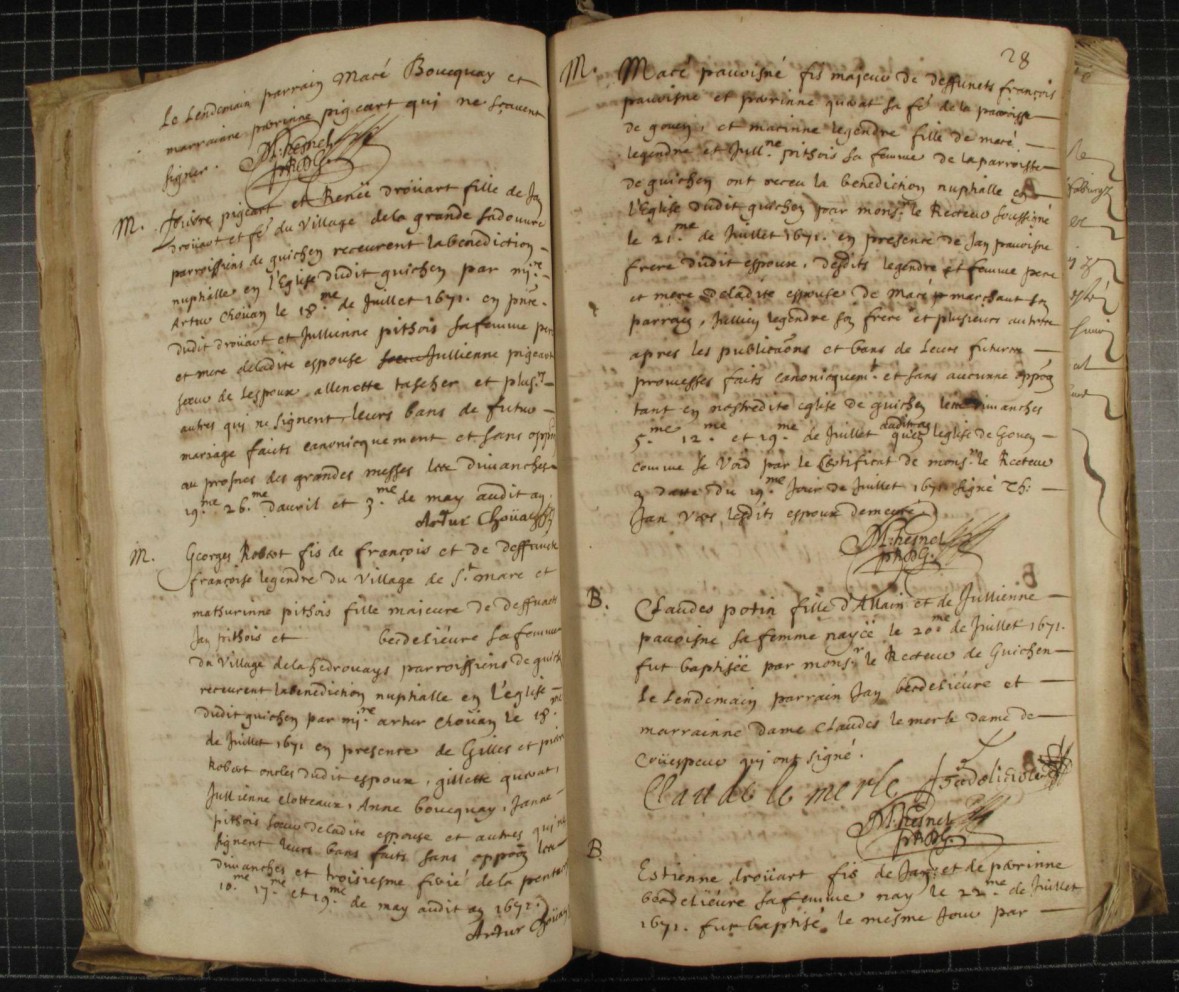 Le Lendemain parrain Macé Boucquay et
marrainne perrinne pigeart qui ne scavent
signer.
M. Hesnel
prtre
M. Jouvre pigeart et Renée droüart fille de Jan
droüart et fe du Village de la grande
parroissiens de guichen receurent la benediction
nuptialle en l'Eglise dudit guichen par mire
Artur Choüan le 18.me de Juillet 1671. en pnce.
dudit droüart et Jullienne pithois sa femme pere
et mere deladite espouse Jullienne pigeart
soeur de lespoux, allenette tascher et plusrs
autres qui ne signent, leurs bans de futur
mariage faits canonicquement et sans oppon
au prosnes des grandes messes les dimanches
19.me 26.me davril et 3.me de may audit an.
Artur Choüan
M. Georges Robert fis de françois et de deffuncte
françoise legendre du Village de St. marc et
mathurinne pithois fille majeure de deffuncts
Jan pithois et berdelieure sa femme
du Village de la hedrouays parroissiens de guichen
receurent la benediction nuphalle en l'eglise
dudit guichen par mire artur choüan le 18.me
de Juillet 1671 en presence de Gilles et pierre
Robert oncles dudit espoux, gillette
Jullienne clotteaux, Anne boucquay, Janne
pithois soeur deladite espouse et autres qui ne
signent leurs bans faits sans oppon les
dimanches et troisiesme de la pentecoste
10.me 17.me et 19.me de may audit an 1671.
Artur Choüan
28
M. Macé pauoisné fis majeur de deffunets françois
pauoisne et perrinne sa fe de la parroisse
de gouen, et marinne legendre fille de macé
legendre et Jullne pithois sa femme de la parroisse
de guichen ont receu la benediction nuphalle en
l'Eglise dudit guichen par monsr le Recteur soussigné
le 21.me de Juillet 1671. en presence de Jan pauoisne
frere dudit espoux, desdits legendre et femme pere
et mere deladite espouse de Macé marchant son
parrain, Jullien legendre son frere et plusieurs autres
apres les publications et bans de Leurs futures
promesses faits canonicquemt et sans aucunne oppon
tant en nostredite eglise de guichen les dimanches
5.me 12.me et 19.me de Juillet audit an qu'en leglise de Gouen
comme se Void par le Certificat de monsr le Recteur
datté du 19.me Jour de Juillet 1671 signé
Jan lesdits espoux demeure
M. Hesnel
prtre
B. Claudes potin fille d'Allain et de Jullienne
pauoisne sa femme nayée le 20.me de Juillet 1671.
fut baptisée par monsr le Recteur de Guichen
Le Lendemain parrain Jan berdelieure et
marrainne dame Claudes le merle dame de
Crüespeux qui ont signé.
Claude le merle J berdelieure
M. Hesnel
prtre
B. Estienne droüart fis de Jan et de perrinne
berdelieure sa femme nay le 22.me de Juillet
1671. fut baptisé le mesme Jour par